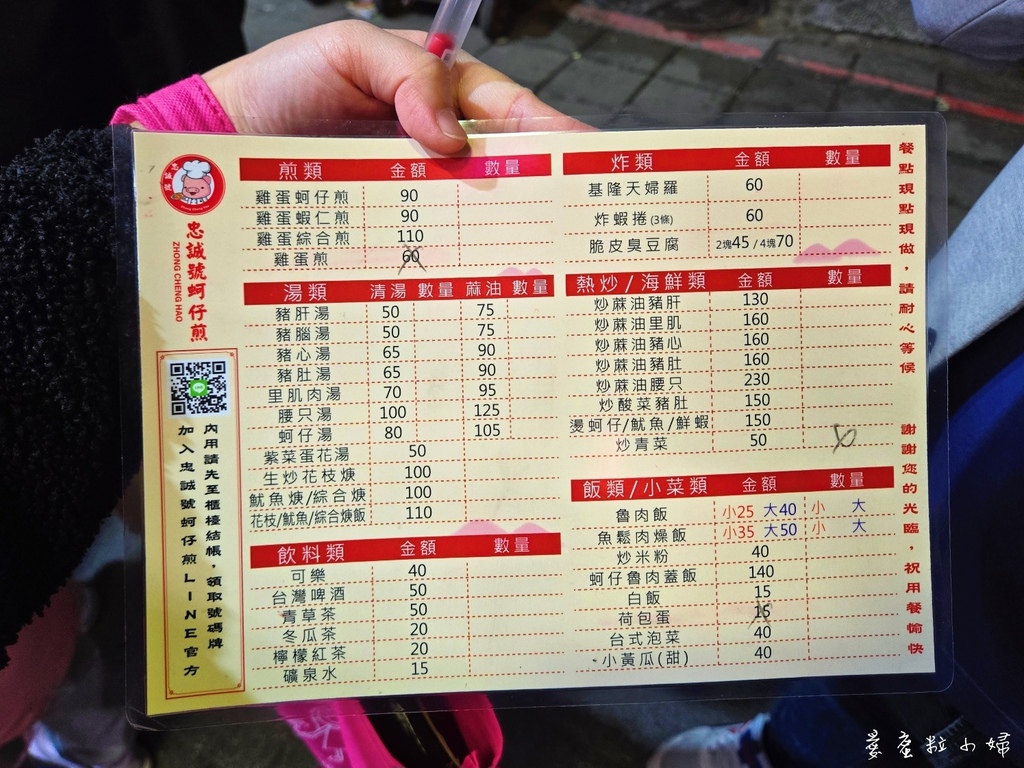 忠誠號
忠誠號蚵仔煎
ZHONG CHENG HAO
內用請先至櫃檯結帳，領取號碼牌
加入忠誠號蚵仔煎LINE官方
煎類 金額 數量
雞蛋蚵仔煎 90
雞蛋蝦仁煎 90
雞蛋綜合煎 110
雞蛋煎 60
湯類 清湯 數量 蔴油 數量
豬肝湯 50 75
豬腦湯 50 75
豬心湯 65 90
豬肚湯 65 90
里肌肉湯 70 95
腰只湯 100 125
蚵仔湯 80 105
紫菜蛋花湯 50
生炒花枝焿 100
魷魚焿/綜合焿 100
花枝/魷魚/綜合焿飯 110
飲料類 金額 數量
可樂 40
台灣啤酒 50
青草茶 50
冬瓜茶 20
檸檬紅茶 20
礦泉水 15
炸類 金額 數量
基隆天婦羅 60
炸蝦捲(3條) 60
脆皮臭豆腐 2塊45 / 4塊70
熱炒/海鮮類 金額 數量
炒蔴油豬肝 130
炒蔴油里肌 160
炒蔴油豬心 160
炒蔴油豬肚 160
炒蔴油腰只 230
炒酸菜豬肚 150
燙蚵仔/魷魚/鮮蝦 150
炒青菜 50
飯類/小菜類 金額 數量
魯肉飯 小25 大40 小 大
魚鬆肉燥飯 小35 大50 小 大
炒米粉 40
蚵仔魯肉蓋飯 140
白飯 15
荷包蛋 15
台式泡菜 40
小黃瓜(甜) 40
餐點現點現做，請耐心等候
謝謝您的光臨，祝用餐愉快